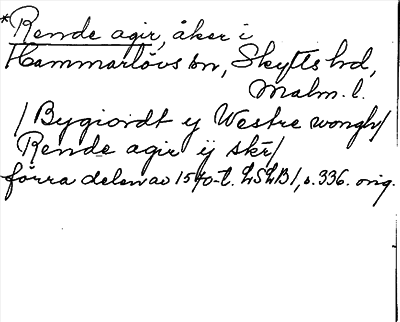 *Rende agir, åker i
Hammarlövs sn, Skytts hd,
Malm. l.
/Bygiordt y Westre wongh/
Rende agir ij skr̄/
förra delen av 1570-t. LSLB1, s. 336. orig.